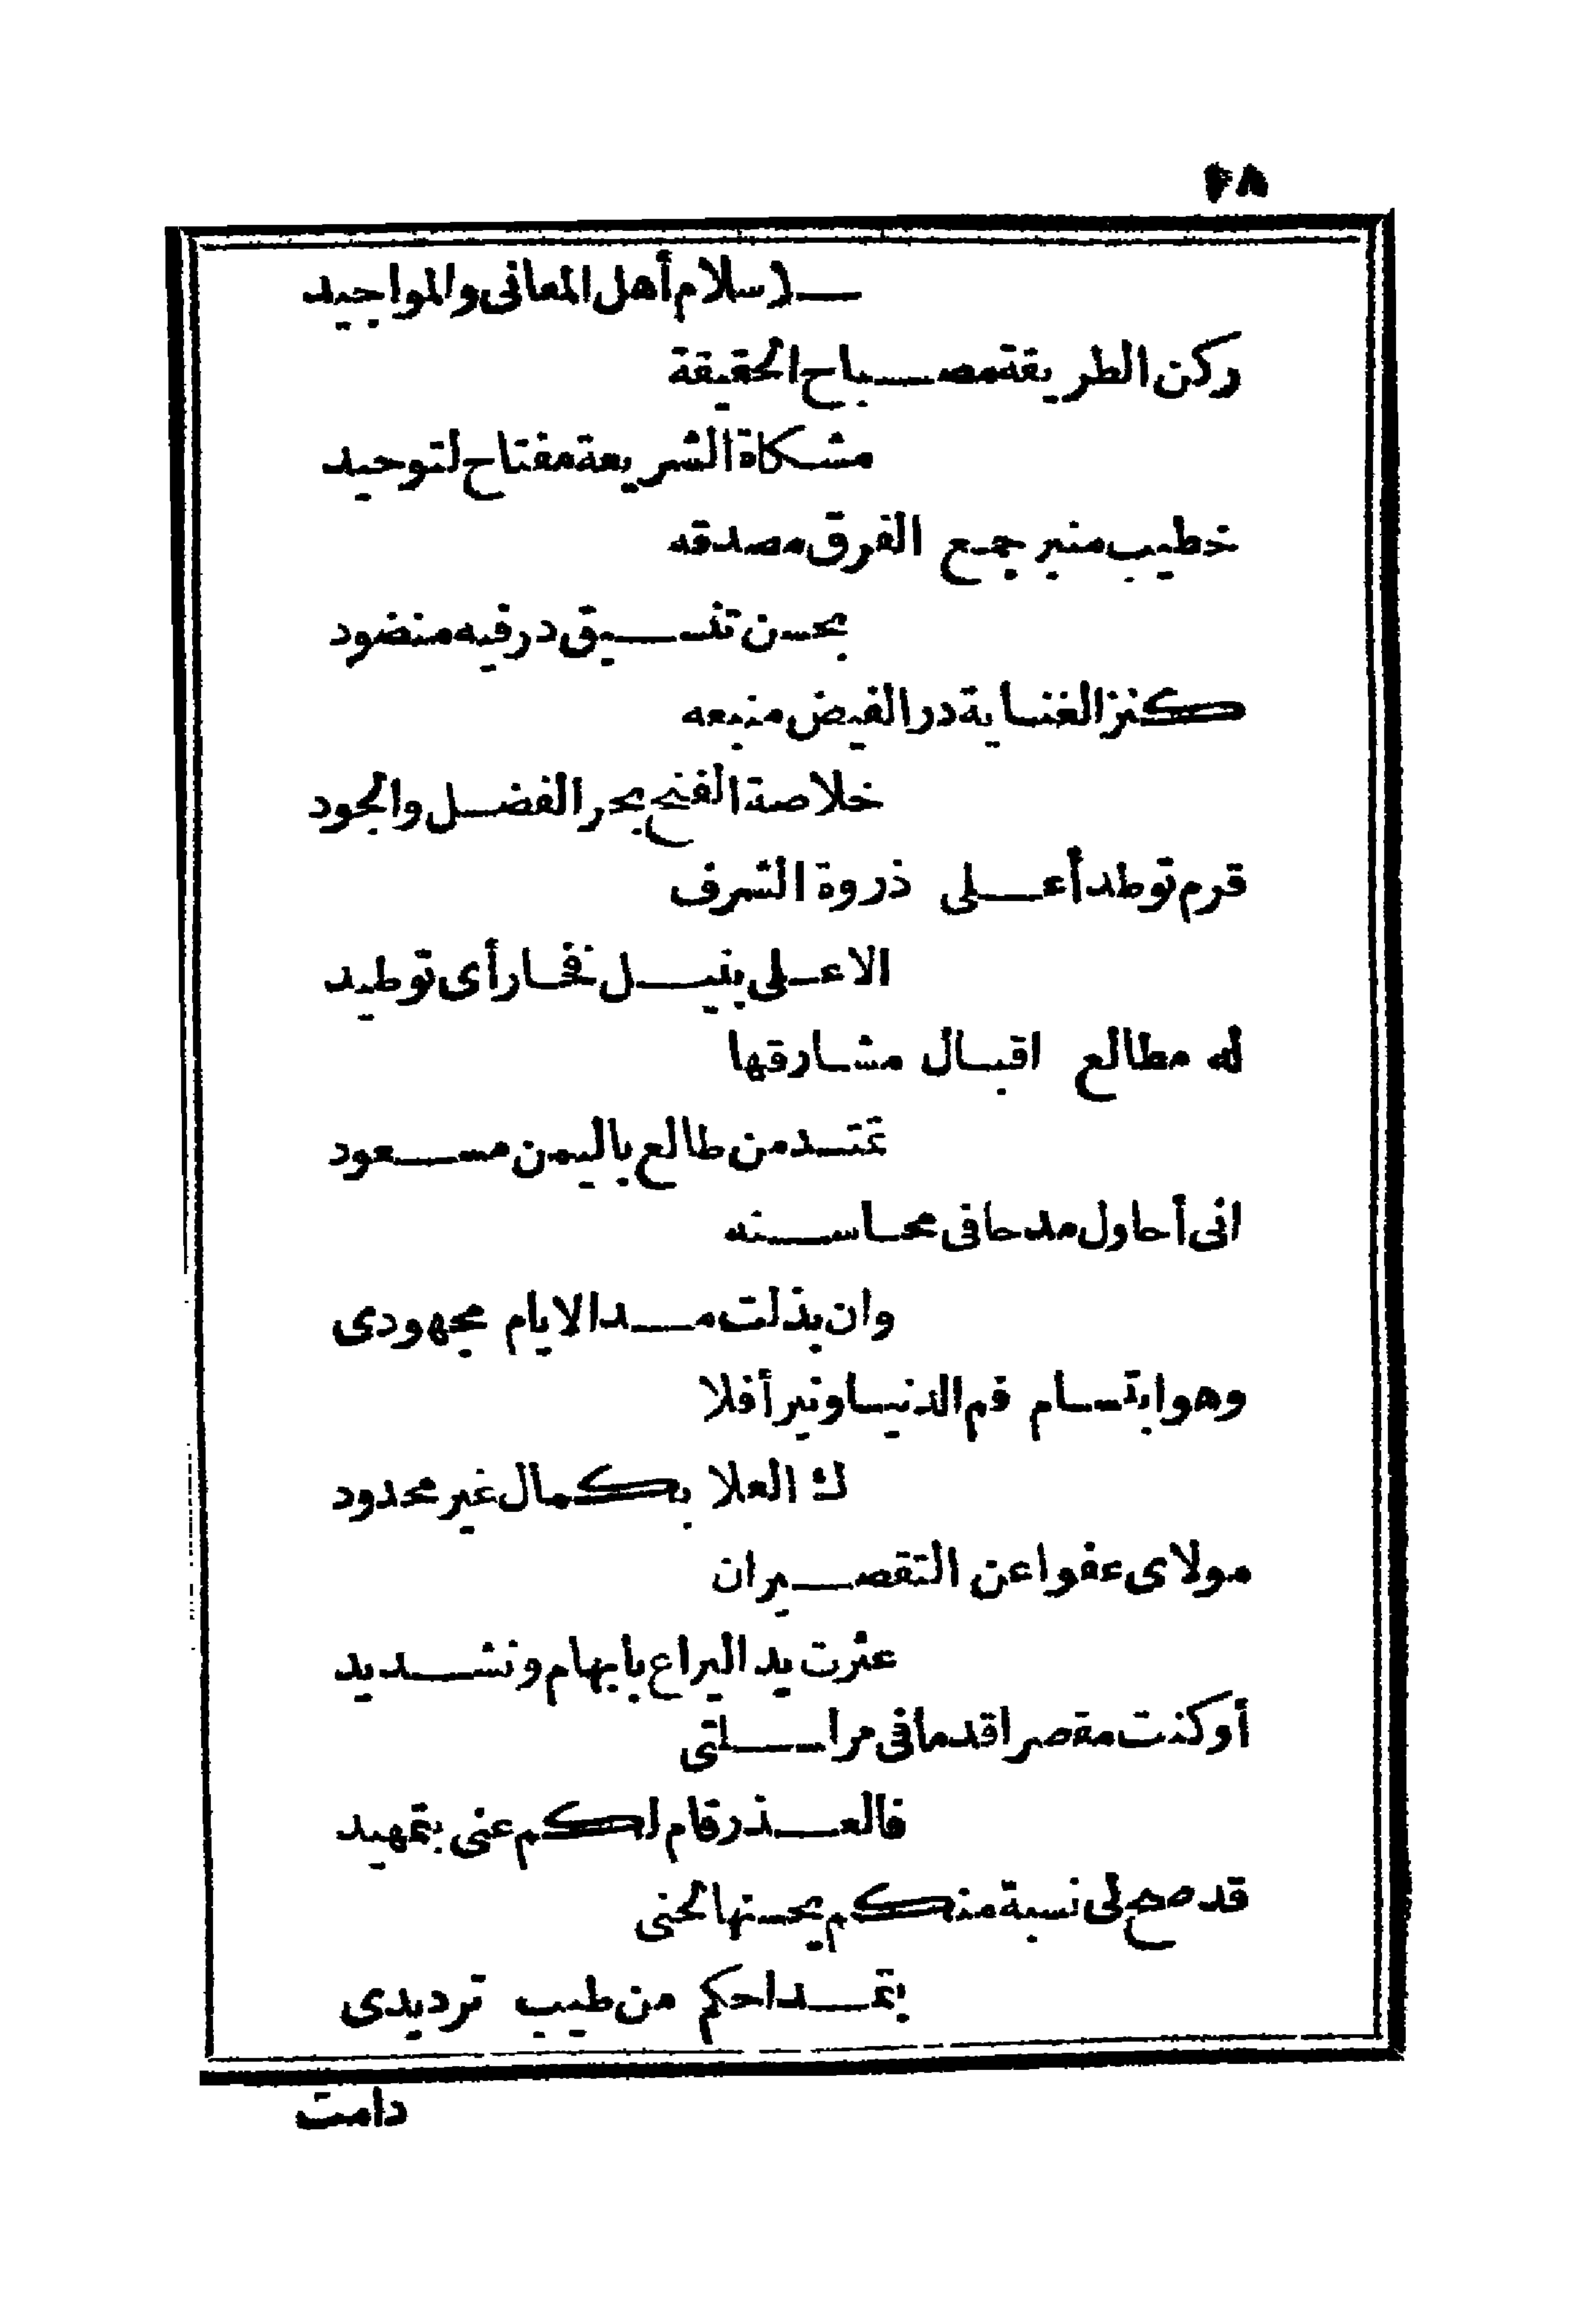 ٤٨
ـلاسلام أهل المعانى والمواجيد
ركن الطريقة مصباح الحقيقة
مشكاة الشريعة مفتاح لتوحيد
خطيب منبر جمع الفرق مصدقه
بحسن تنسيق در فيه منضود
كنز الغناية در الفيض منبعه
خلاصة الفتح بحر الفضل والجود
قرم توطد أعلى ذروة الشرف
الاعلى بنيل فخار أى توطيد
له مطالع اقبال مشارقها
تمتد من طالع باليمن مسعود
انى أحاول مدحا فى محاسنه
وان بذلت مدا الايام مجهودى
وهو ابتسام فم الدنيا ونير أفلا
ك العلا بكمال غير محدود
مولاى عفوا عن التقصير ان
عثرت يد اليراع بابهام ونشديد
أوكنت مقصرا قدما فى مراسلتى
فالعذر قام لكم عنى بتمهيد
قد صح لى نسبة منكم يحسنها لحنى
بتمداحكم من طيب ترديدى
دامت